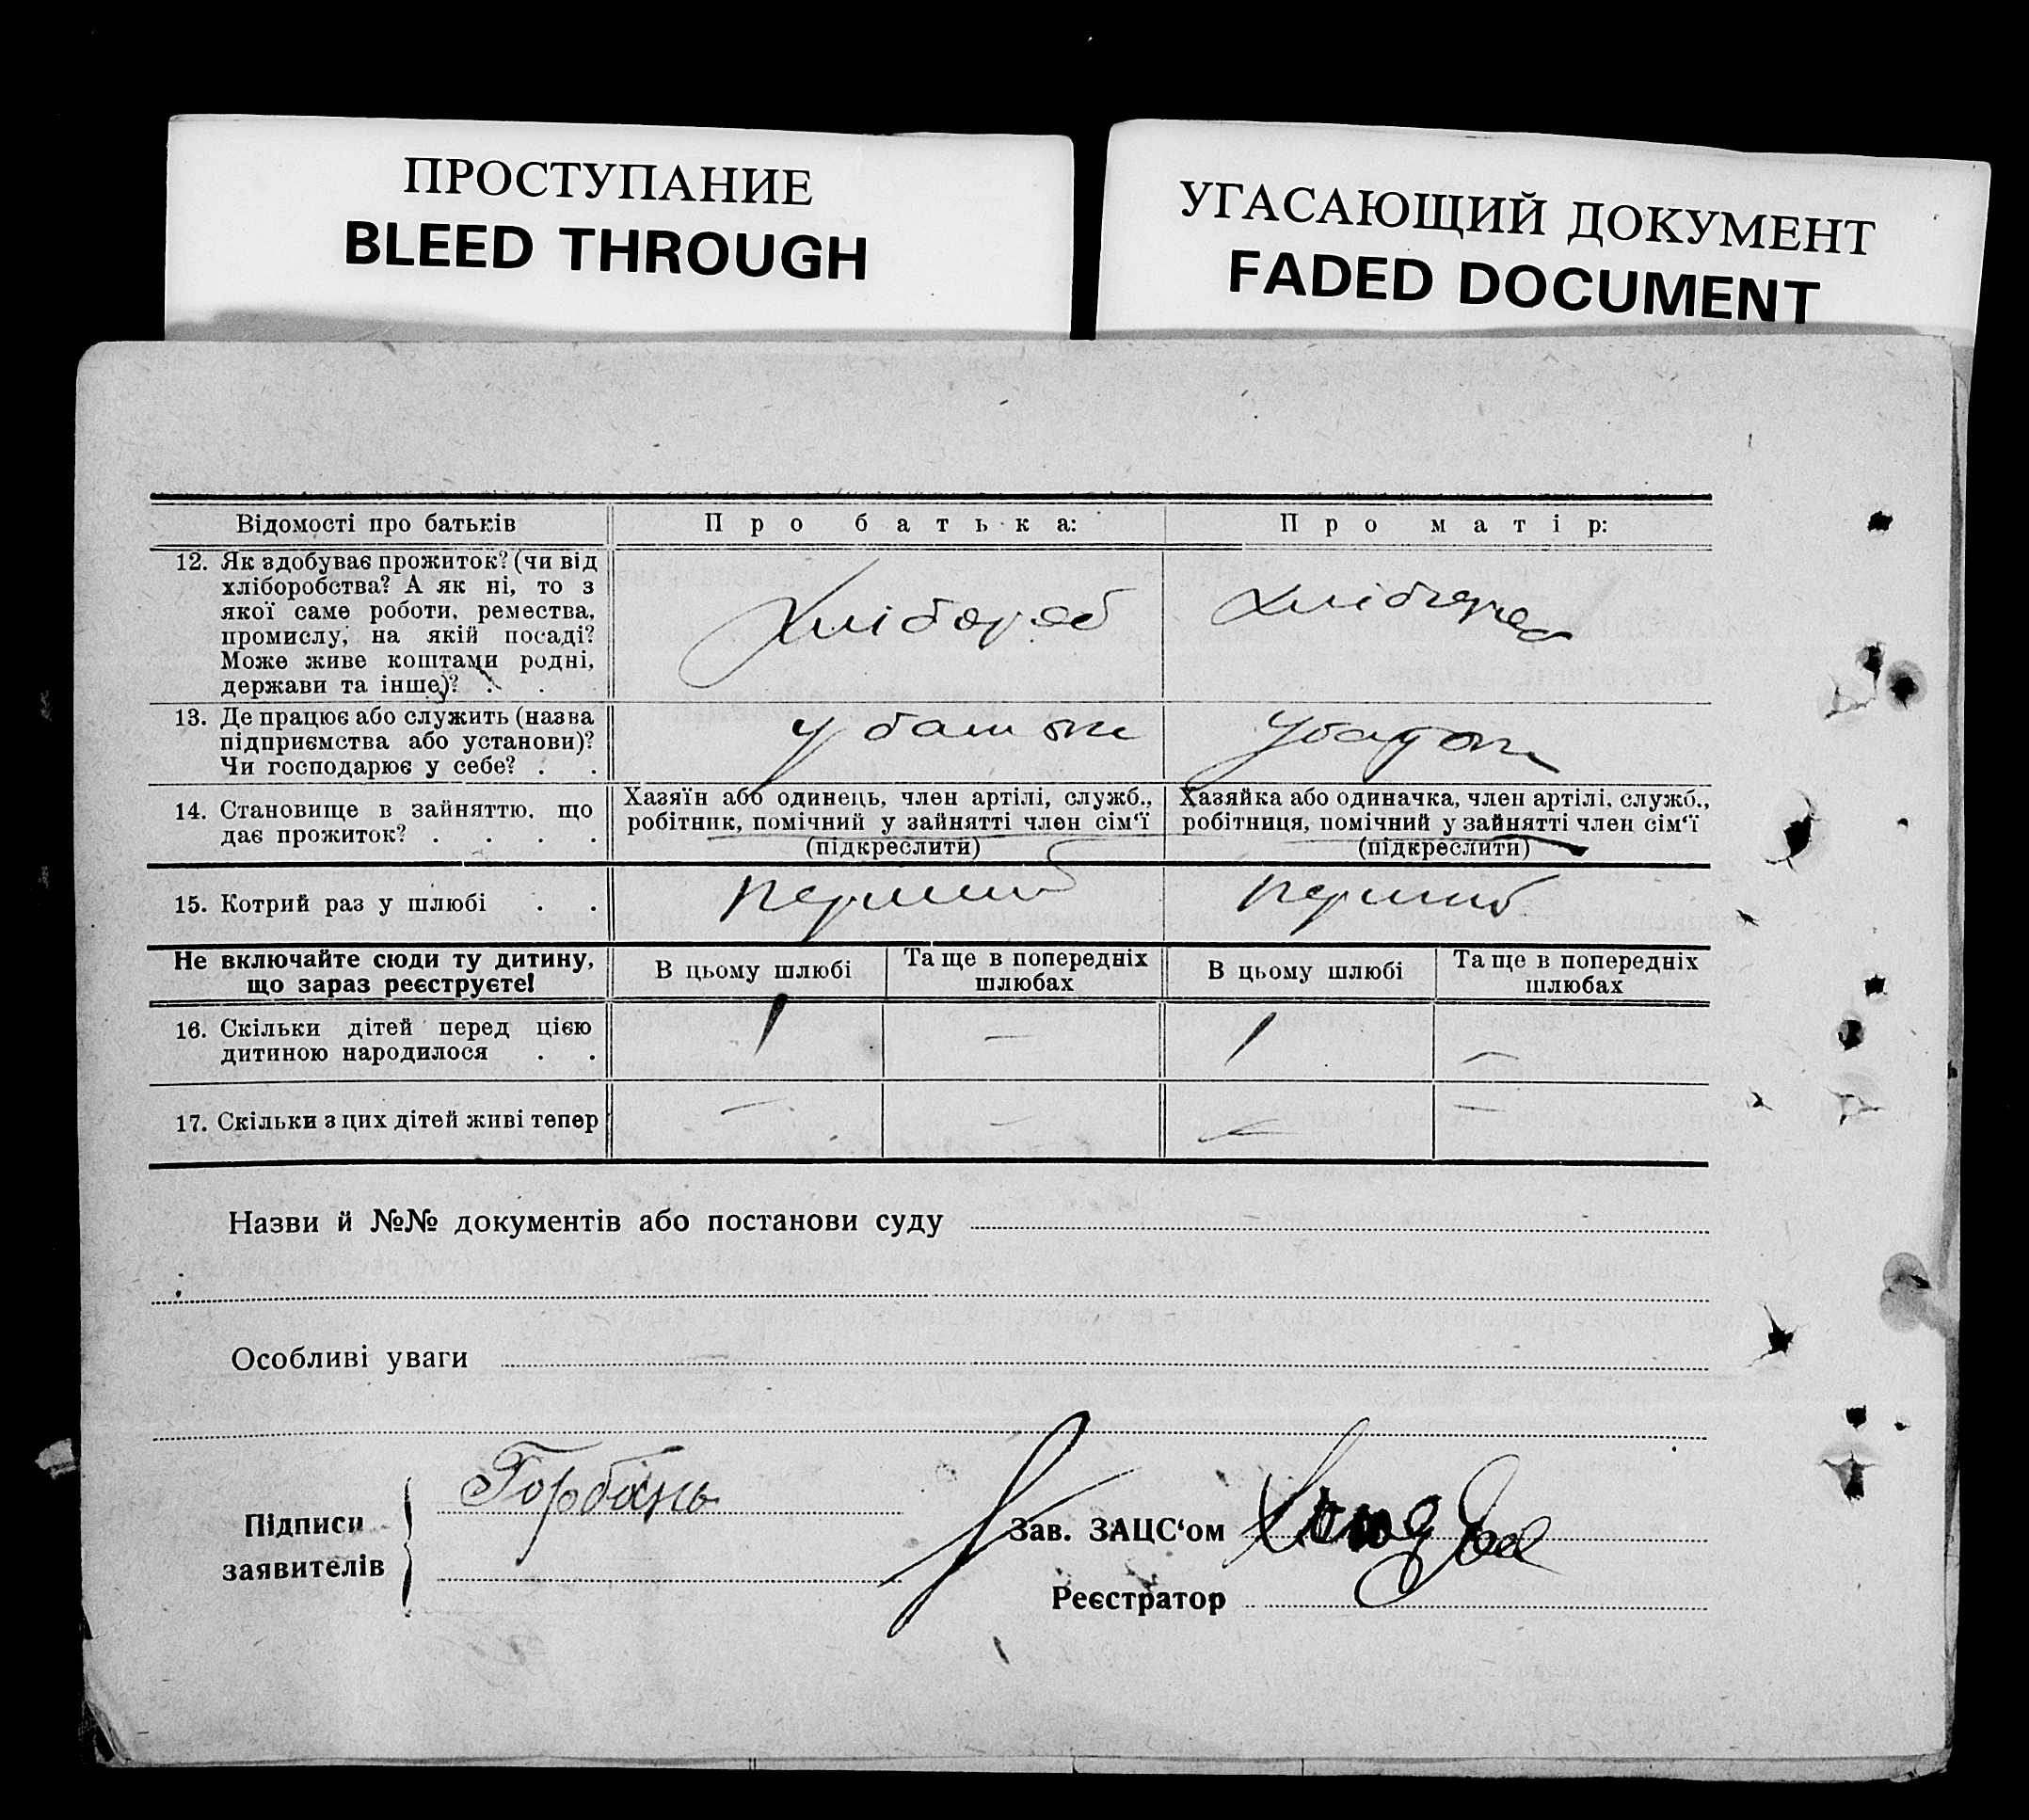 ПРОСТУПАНИЕ
BLEED THROUGH
УГАСАЮЩИЙ ДОКУМЕНТ
FADED DOCUMENT
Відомості про батьків
Про батька:
Про матір:
12. Як здобуває прожиток? (чи від
хліборобства? А як ні, то з
якої саме роботи, ремества,
промислу, на якій посаді?
Може живе коштами родні,
держави та інше)? . . .
Хлібороб
13. Де працює або служить (назва
підприємства або установи)?
Чи господарює у себе? . .
у батьки
14. Становище в зайняттю, що
дає прожиток? . . . .
Хазяїн або одинець, член артілі, служб.,
робітник, помічний у зайнятті член сім'ї
(підкреслити)
Хазяйка або одиначка, член артілі, служб.,
робітниця, помічний у зайнятті член сім'ї
(підкреслити)
15. Котрий раз у шлюбі . .
перший
перший
Не включайте сюди ту дитину,
що зараз реєструєте!
В цьому шлюбі
Та ще в попередніх
шлюбах
В цьому шлюбі
Та ще в попередніх
шлюбах
16. Скільки дітей перед цією
дитиною народилося . .
1
—
1
—
17. Скільки з цих дітей живі тепер
—
—
—
—
Назви й №№ документів або постанови суду
Особливі уваги
Підписи
заявителів
Горбань
Зав. ЗАЦС'ом
Реєстратор